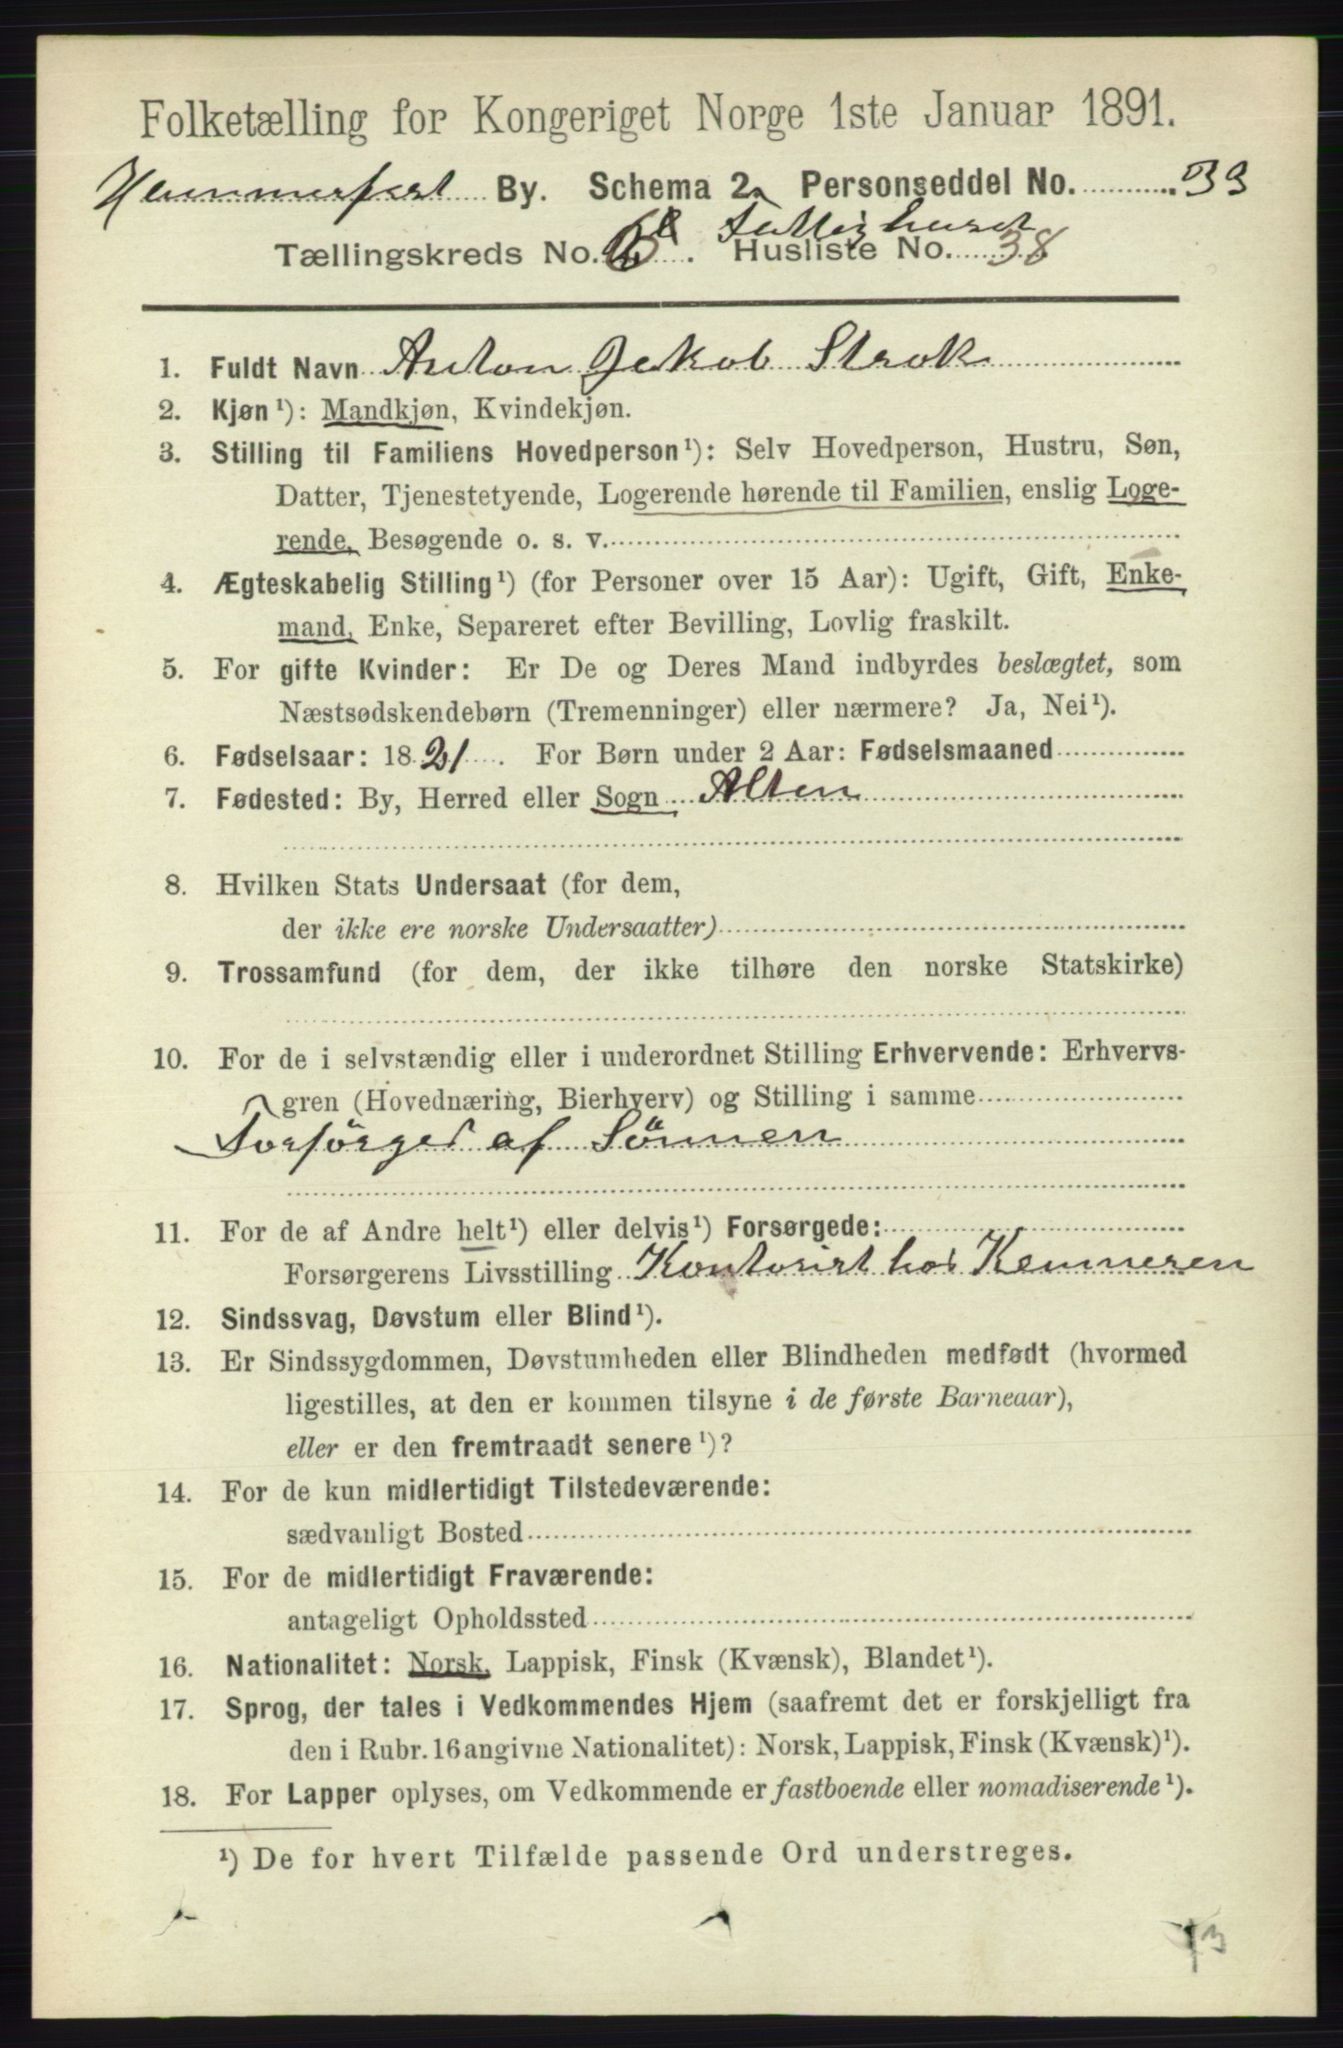 Folketælling for Kongeriget Norge 1ste Januar 1891.
Hammerfest By. Schema 2. Personseddel No. 33
Fattighuset
Tællingskreds No. 6 . Husliste No. 38
1. Fuldt Navn Anton Jakob Strok
2. Kjøn¹): Mandkjøn, Kvindekjøn.
3. Stilling til Familiens Hovedperson¹): Selv Hovedperson, Hustru, Søn,
Datter, Tjenestetyende, Logerende hørende til Familien, enslig Loge-
rende, Besøgende o. s. v.
4. Ægteskabelig Stilling¹) (for Personer over 15 Aar): Ugift, Gift, Enke-
mand, Enke, Separeret efter Bevilling, Lovlig fraskilt.
5. For gifte Kvinder: Er De og Deres Mand indbyrdes beslægtet, som
Næstsødskendebørn (Tremenninger) eller nærmere? Ja, Nei¹).
6. Fødselsaar: 1821. For Børn under 2 Aar: Fødselsmaaned
7. Fødested: By, Herred eller Sogn Alten
8. Hvilken Stats Undersaat (for dem,
der ikke ere norske Undersaatter)
9. Trossamfund (for dem, der ikke tilhøre den norske Statskirke)
10. For de i selvstændig eller i underordnet Stilling Erhvervende: Erhvervs-
gren (Hovednæring, Bierhverv) og Stilling i samme
Forsörges af Sönnen
11. For de af Andre helt¹) eller delvis¹) Forsørgede:
Forsørgerens Livsstilling Kontorist hos Kemneren
12. Sindssvag, Døvstum eller Blind¹).
13. Er Sindssygdommen, Døvstumheden eller Blindheden medfødt (hvormed
ligestilles, at den er kommen tilsyne i de første Barneaar),
eller er den fremtraadt senere¹)?
14. For de kun midlertidigt Tilstedeværende:
sædvanligt Bosted
15. For de midlertidigt Fraværende:
antageligt Opholdssted
16. Nationalitet: Norsk, Lappisk, Finsk (Kvænsk), Blandet¹).
17. Sprog, der tales i Vedkommendes Hjem (saafremt det er forskjelligt fra
den i Rubr. 16 angivne Nationalitet): Norsk, Lappisk, Finsk (Kvænsk)¹).
18. For Lapper oplyses, om Vedkommende er fastboende eller nomadiserende¹).
¹) De for hvert Tilfælde passende Ord understreges.